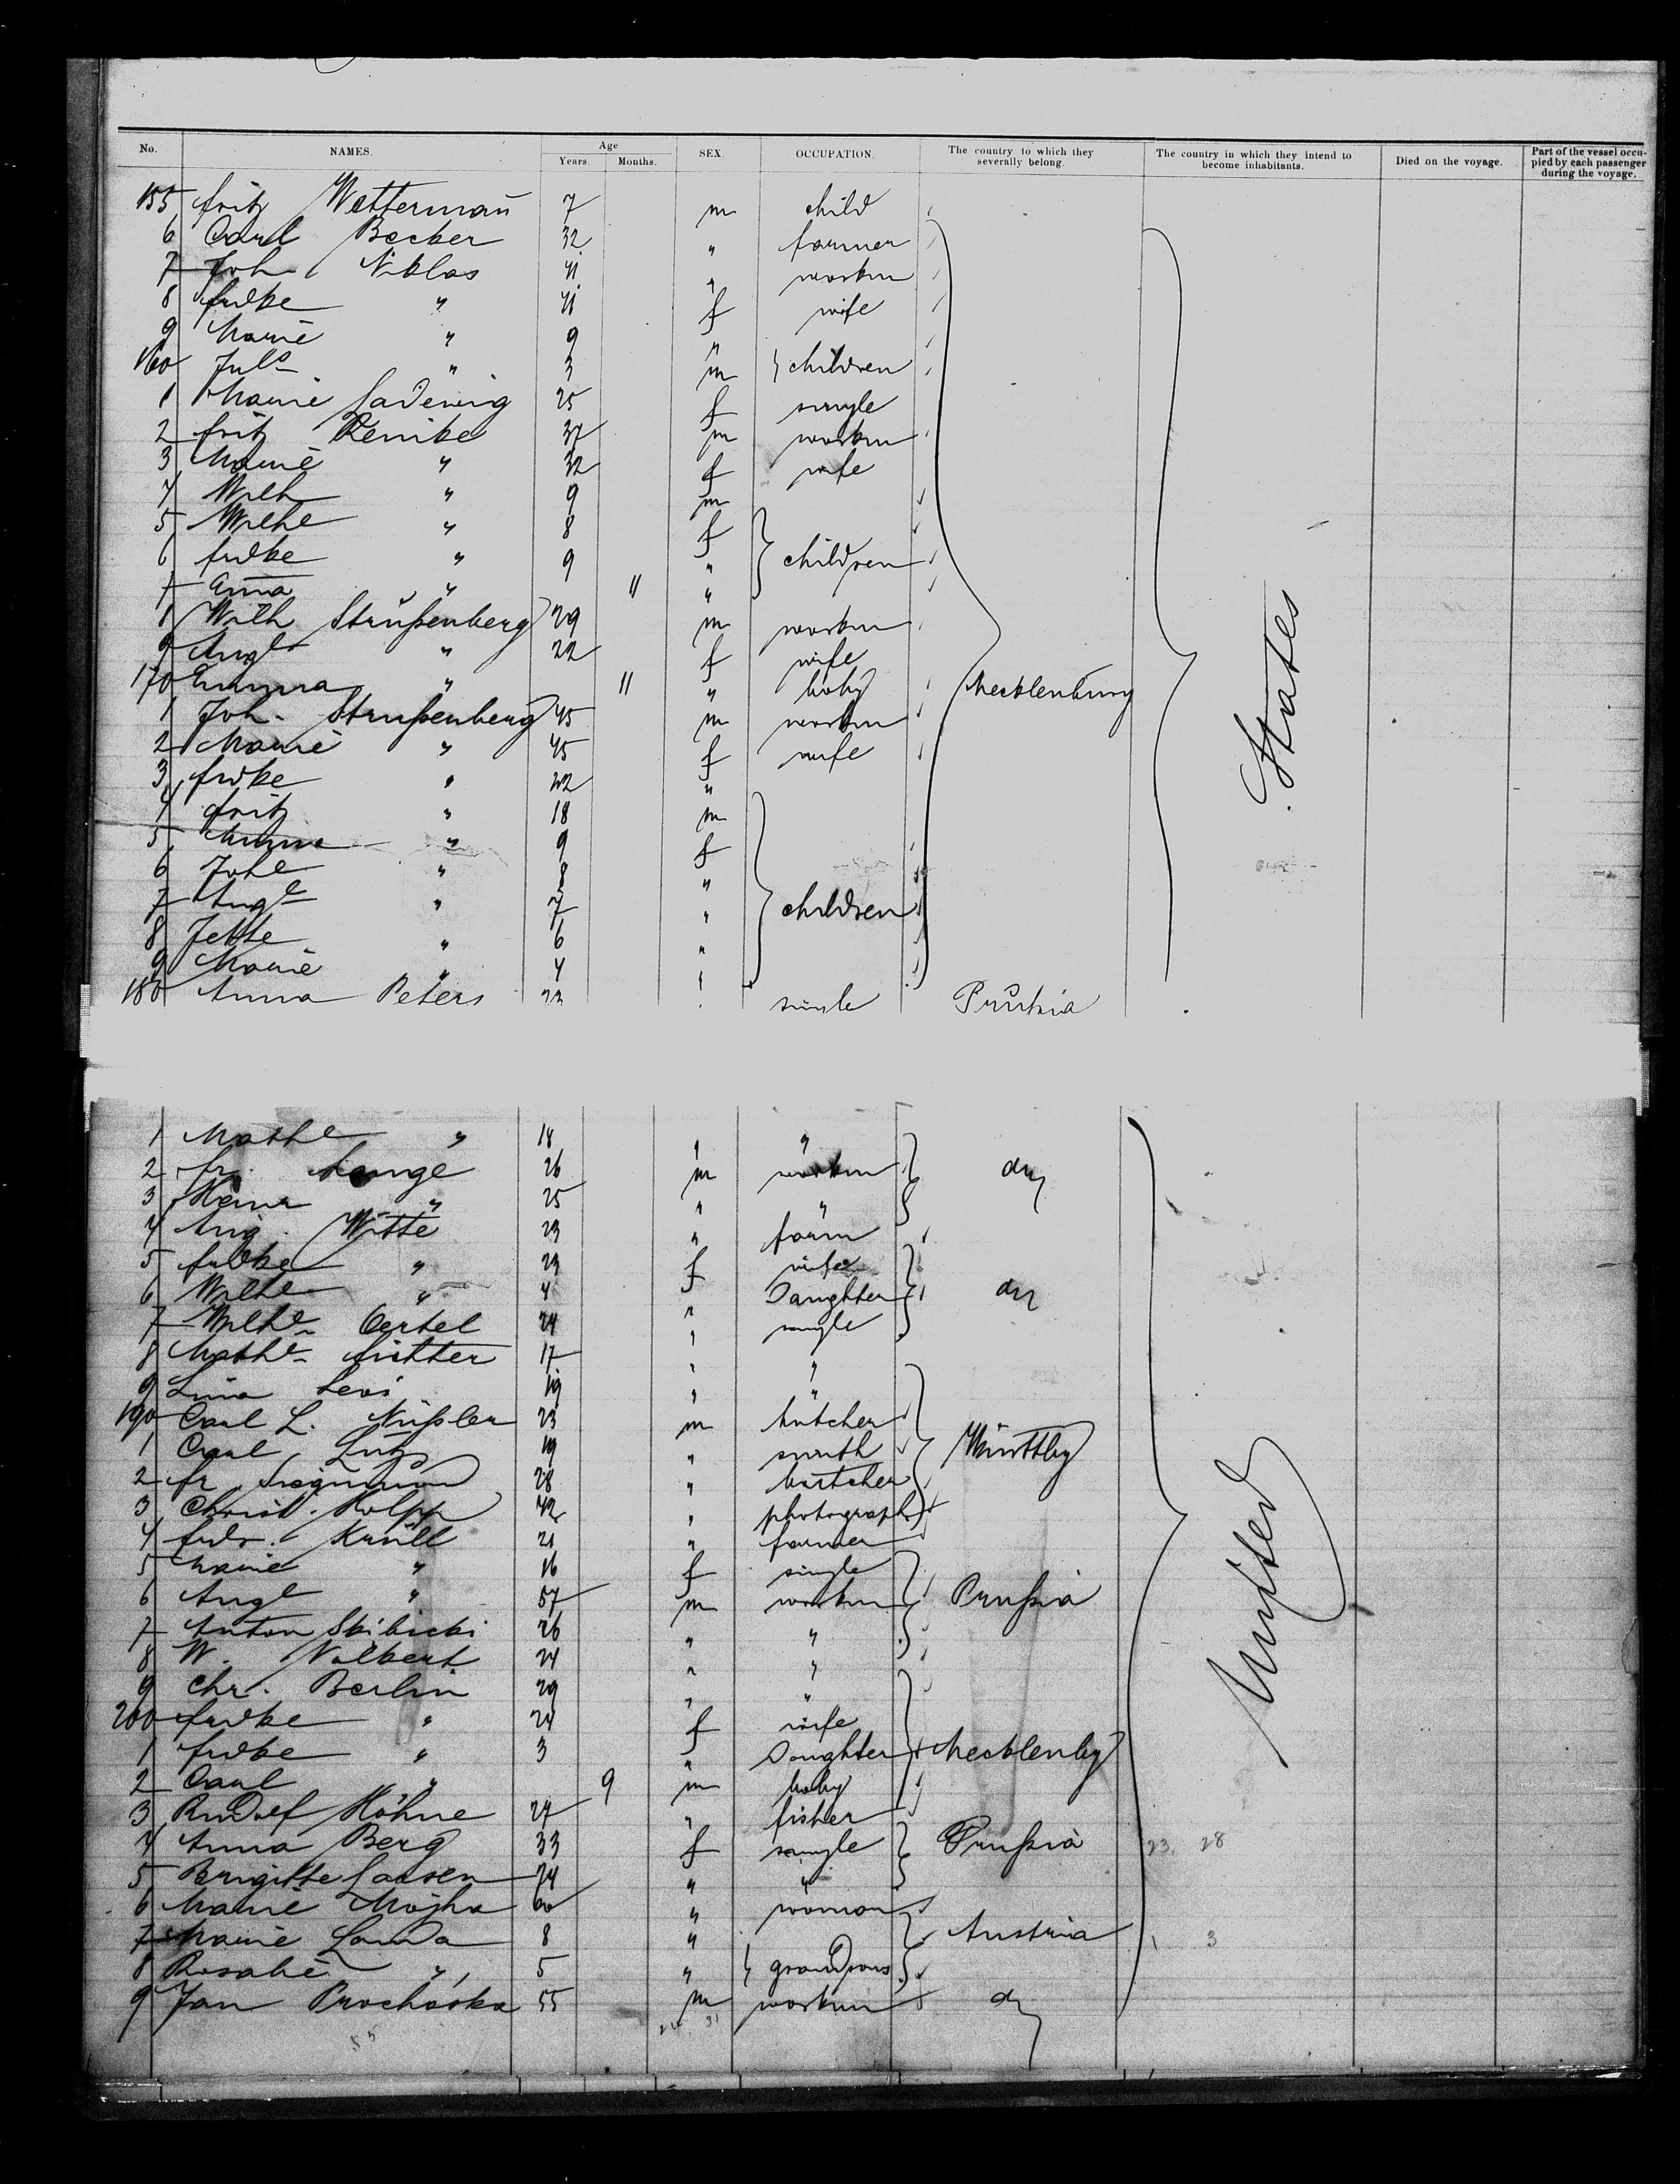 No. NAMES. Age Years. Months. SEX. OCCUPATION. The country to which they severally belong. The country in which they intend to become inhabitants. Died on the voyage. Part of the vessel occupied by each passenger during the voyage.
155 Fritz Wetterman̄ 7 m child
6 Carl Becker 32 " farmer
7 Joh Niklas 41 " workm
8 Fridke " 41 f wife
9 Marie " 9 "
160 Jul⁵ " 3 m } children
1 Marie Ladewig 25 f single
2 Fritz Renike 37 m workm
3 Marie " 32 f wife
4 Wilh " 9 m
5 Wilhe " 8 f
6 Fridke " 9 " } children
7 Anna " 11 "
8 Wilh Strußenberg 29 m workm
9 Auge " 22 f wife
170 Emma " 11 " baby Mecklenburg
1 Joh. Strußenberg 45 m workm
2 Marie " 45 f wife
3 Fridke " 22 "
4 Fritz " 18 m
5 Minna " 9 f
6 Johe " 8 "
7 Auge " 7 " } children
8 Jette " 6 "
9 Marie " 4 "
180 Anna Peters 23 single Prußia
States
1 Mathe " 18 " "
2 Fr. Lange 26 m workm do
3 " 25 " "
4 Aug. Witte 23 " farm
5 Fridke " 23 f wife
6 Wilhe " 4 Daughter do
7 Wilhe Oertel 24 " single
8 Mathe 17 " "
9 Lina Levi 19 " "
190 Carl L. Nüßler 23 m butcher
1 Carl Lutz 19 " smith Württbg
2 Fr 28 " butcher
3 Christ. Kolpp 42 " photograph
4 Fridr. Krull 21 " farmer
5 Marie " 16 f single
6 Aug " 57 m workm Prußia
7 Anton Skibicki 26 " "
8 W. Nilbert 24 " "
9 Chr. Berlin 29 " "
200 Fridke " 24 f wife
1 Fridke " 3 " Daughter Mecklenbg
2 Carl " 9 m baby
3 Rudolf Höhne 27 " fisher
4 Anna Berg 33 f single Prußia 23. 28
5 Brigitte Lassen 24 " "
6 Marie Mojha 60 " woman
7 Marie Landa 8 " Austria 1 3
8 Rosalie " 5 " } grandsons
9 Jan Prochaska 55 m workm do
United